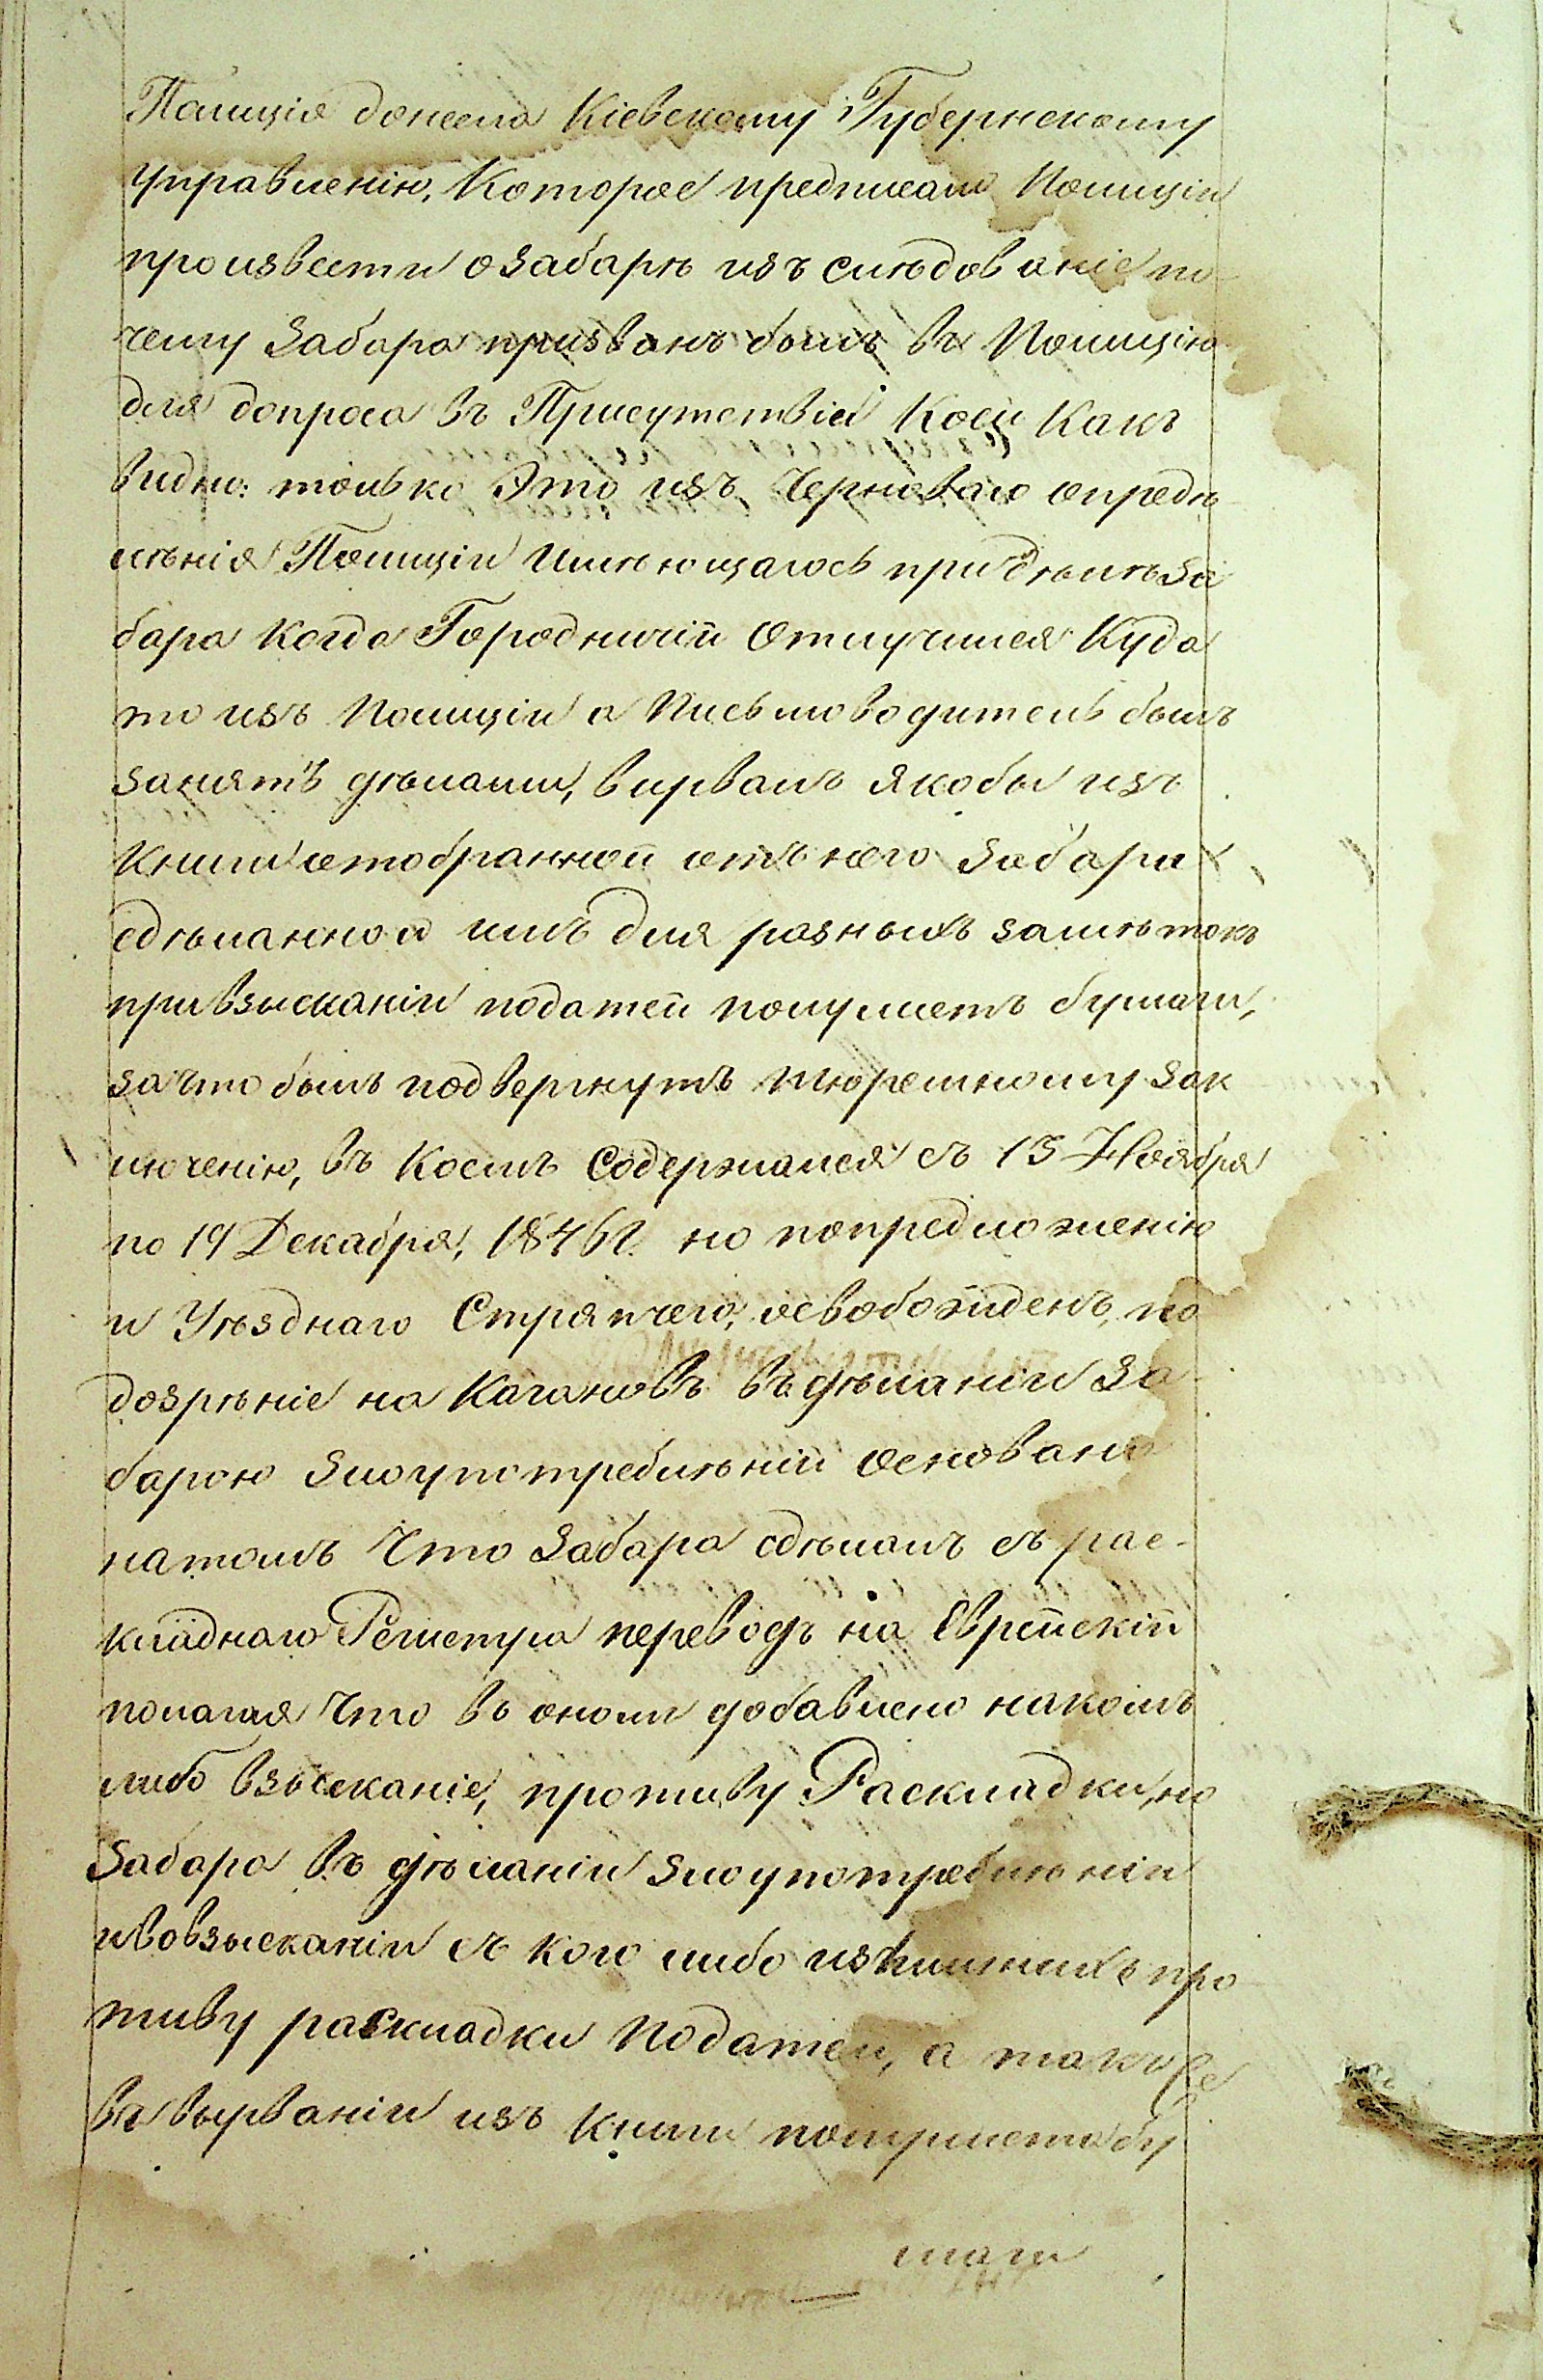 Полиція донесла Кіевскому Губернскому
управленію, Которое предписало Полиціи
произвести о Забарѣ изъ слѣдованіе по-
чему Забара призванъ былъ въ Полицію
для допроса въ Присутствіи Коей Какъ
видно: только Это изъ Черноваго опредѣ
лѣнія Полиціи Имѣющагось при дѣлѣ За
бара Когда Городничій Отлучился Куда
то изъ Полиціи а Письмоводитель былъ
занятъ дѣлами, вирвалъ якобы изъ
Книги отобранной отъ него Забари
сдѣланной имъ для разныхъ замѣтокъ
при взысканіи податей полулистъ бумаги,
за что былъ подвергнутъ тюремному зак
люченію, въ Коемъ Содержался съ 15 Ноября
по 19 Декабря, 1846 г. но по предложенію
и Уѣзднаго Стряпчего, освобожденъ, по
дозрѣніе на Кагановъ въ дѣланіи За-
барою Злоупотреблѣній основано
на томъ Что Забара сдѣлалъ съ рас-
кладнаго Регистра переводъ на Еврейскій
полагая Что въ ономъ добавлено на комъ
либо взысканіе, противу Раскладки, но
Забара въ дѣланіи злоупотреблѣній
и во взысканіи съ кого либо излишнихъ про
тиву раскладки Податей, а также
въ вырваніи изъ Книги полулиста бу
маги